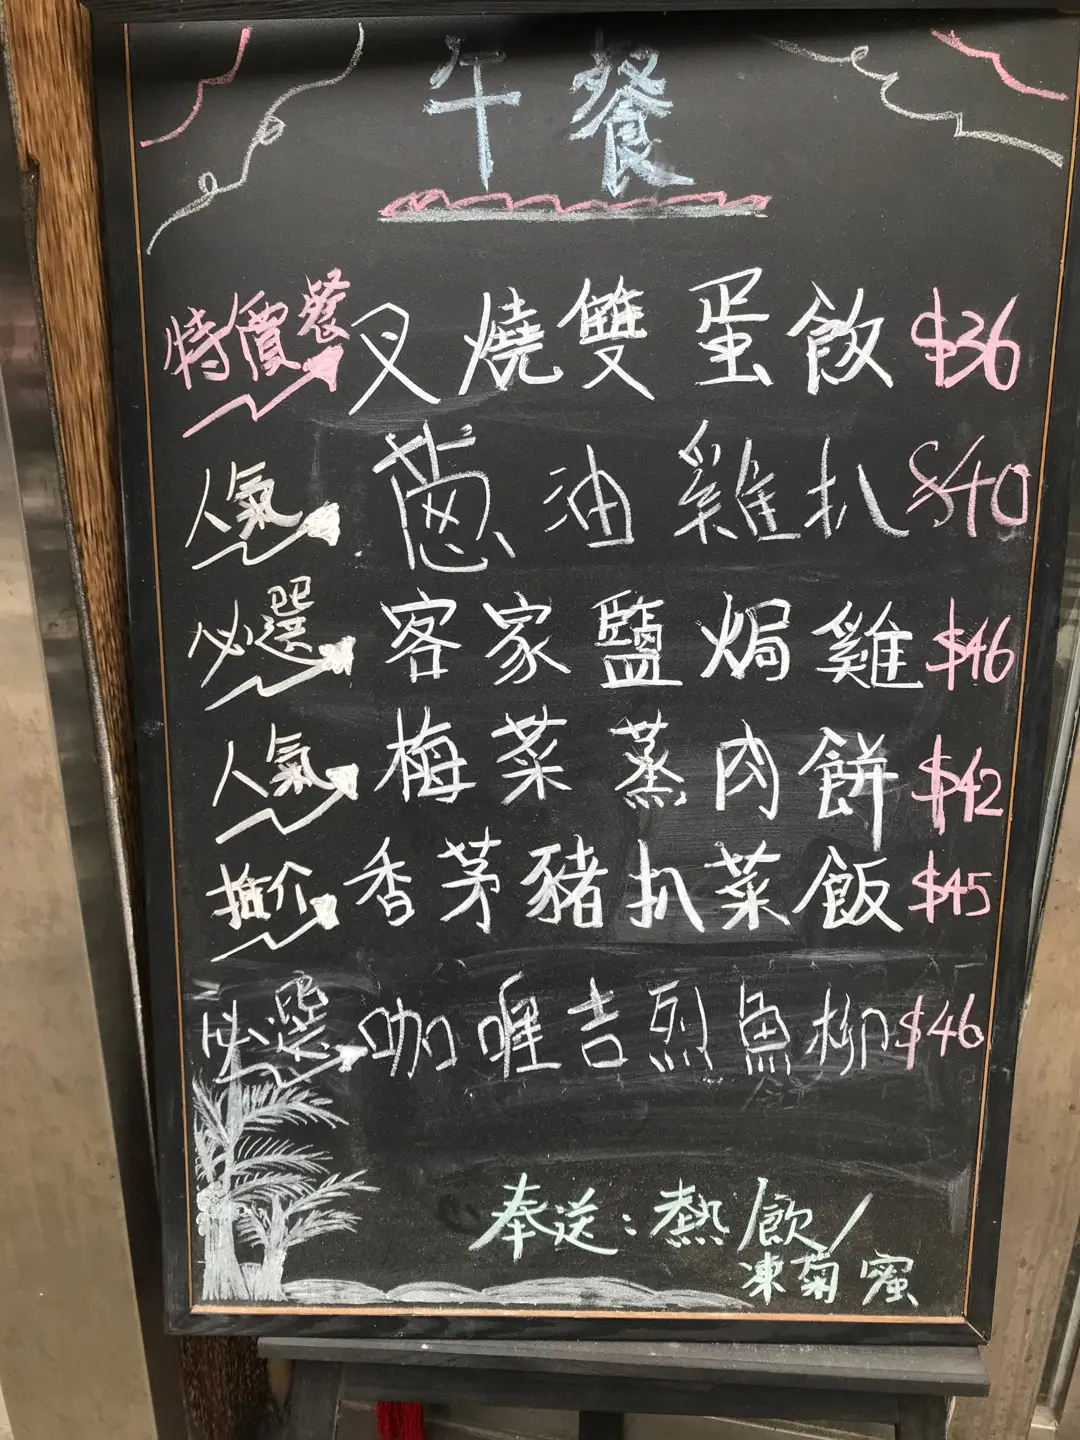 午餐
特價餐 叉燒雙蛋飯 $36
人氣 蔥油雞扒 $40
必選 客家鹽焗雞 $46
人氣 梅菜蒸肉餅 $42
推介 香茅豬扒菜飯 $45
必選 咖喱吉烈魚柳 $46
奉送：熱飲/
凍菊蜜